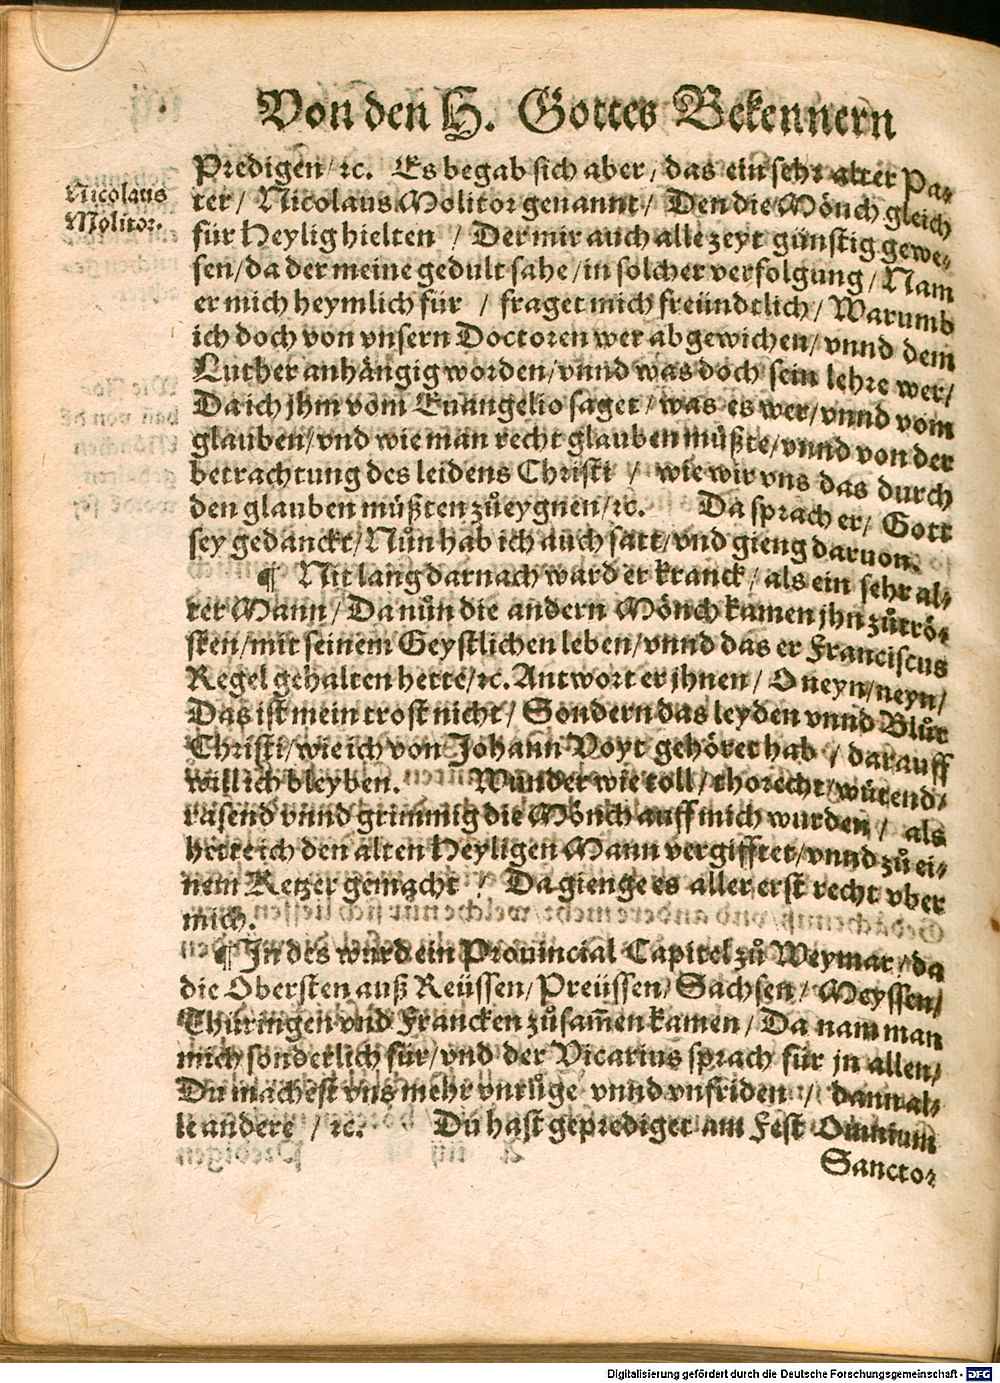 Von den H. Gottes Bekennern
Nicolaus
Molitor.
Predigen/ ꝛc. Es begab sich aber/ das ein sehr alter Pa⸗
ter/ Nicolaus Molitor genannt/ Den die Mönch gleich
für Heylig hielten / Der mir auch alle zeyt günstig gewe⸗
sen/ da der meine gedult sahe/ in solcher verfolgung/ Nam
er mich heymlich für / fraget mich freündtlich/ Warumb
ich doch von vnsern Doctoren wer abgewichen/ vnnd dem
Luther anhängig worden/ vnnd was doch sein lehre wer/
Da ich jhm vom Euangelio saget/ was es wer/ vnnd vom
glauben/ vnd wie man recht glauben müßte/ vnnd von der
betrachtung des leidens Christi / wie wir vns das durch
den glauben müßten zůeygnen/ ꝛc. Da sprach er/ Gott
sey gedanckt/ Nůn hab ich auch satt/ vnd gieng daruon.
¶ Nit lang darnach ward er kranck/ als ein sehr al⸗
ter Mann/ Da nůn die andern Mönch kamen jhn zůtrö⸗
sten/ mit seinem Geystlichen leben/ vnnd das er Franciscus
Regel gehalten hette/ ꝛc. Antwort er jhnen/ O neyn/ neyn/
Das ist mein trost nicht/ Sondern das leyden vnnd Blůt
Christi/ wie ich von Johann Voyt gehöret hab / darauff
will ich bleyben. Wunder wie toll/ thorecht/ wütend/
rasend vnnd grimmig die Mönch auff mich wurden/ als
hette ich den alten Heyligen Mann vergifftet/ vnnd zů ei⸗
nem Ketzer gemacht / Da gienge es aller erst recht vber
mich.
¶ In des wurd ein Prouincial Capitel zů Weymar/ da
die Obersten auß Reüssen/ Preüssen/ Sachsen/ Meyssen/
Thüringen vnd Francken zůsam̃en kamen/ Da nam man
mich sonderlich für/ vnd der Vicarius sprach für jn allen/
Du machest vns mehr vnrůge vnnd vnfriden / dann al⸗
le andere / ꝛc. Du hast geprediget am Fest Omnium
Sanctor
Digitalisierung gefördert durch die Deutsche Forschungsgemeinschaft - DFG